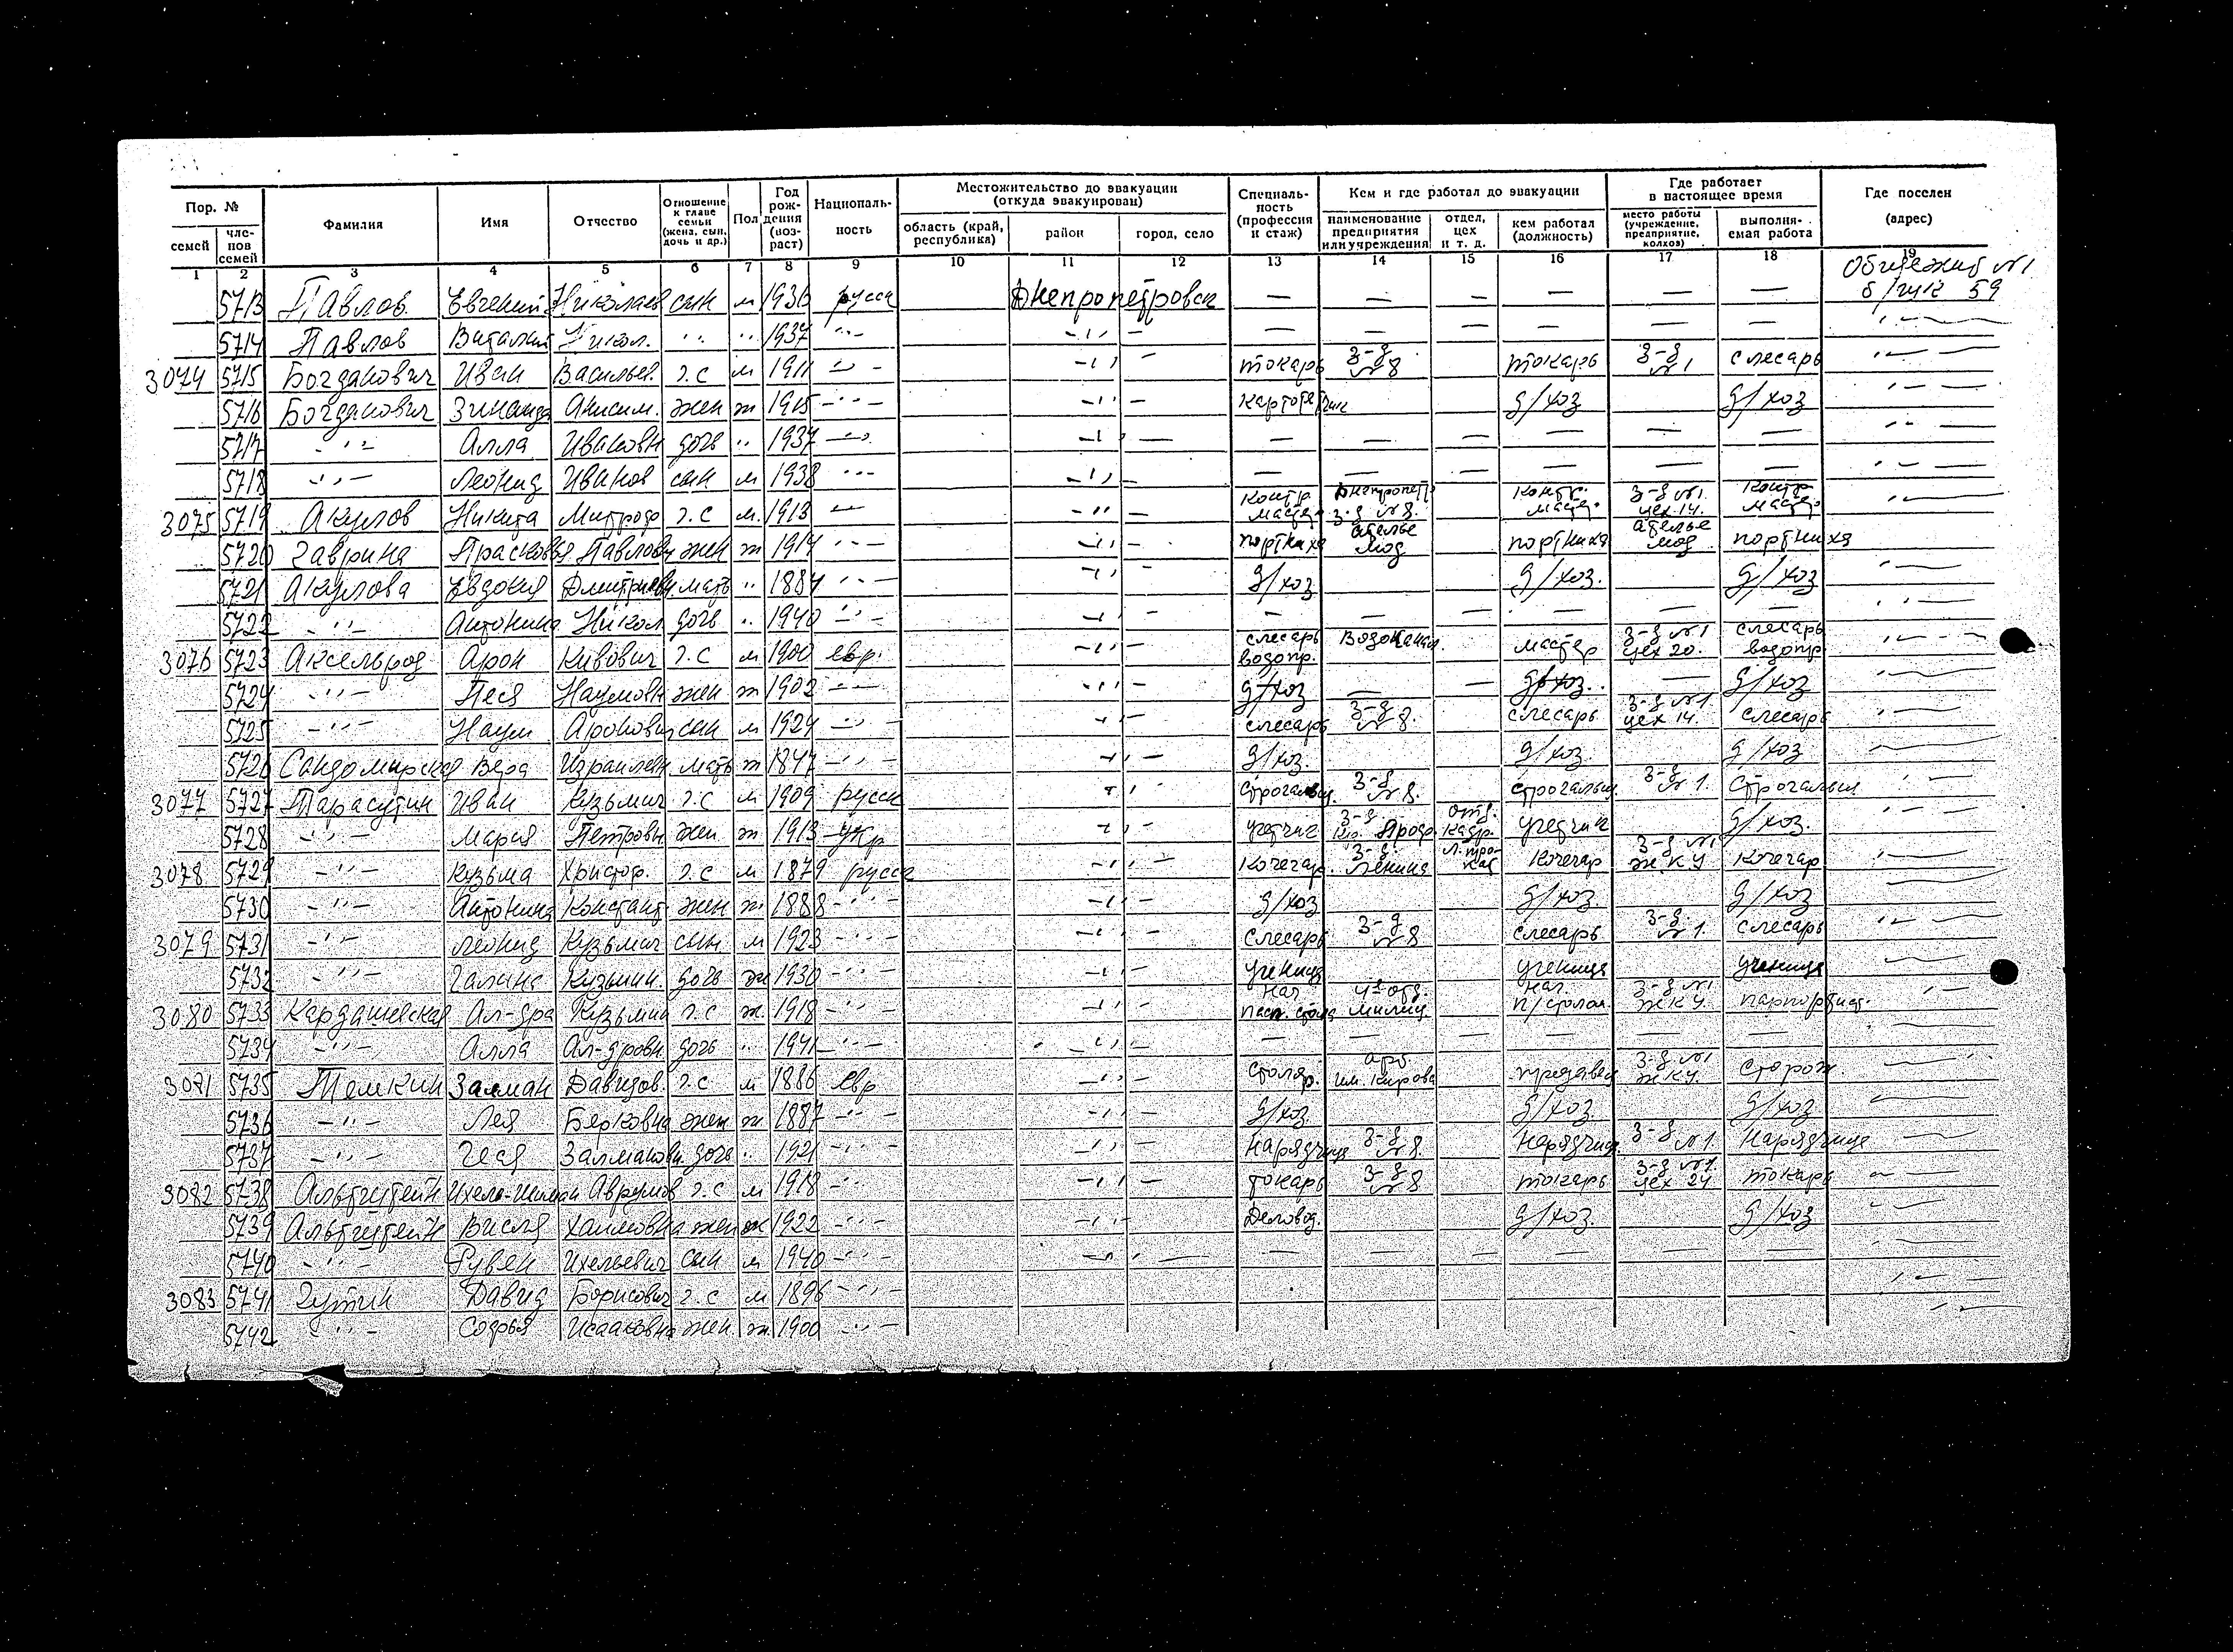 Пор. № | Фамилия | Имя | Отчество | Отношение к главе семьи (жена, сын, дочь и др.) | Пол | Год рождения (возраст) | Националь-ность | Местожительство до эвакуации (откуда эвакуирован) | Специаль-ность (профессия и стаж) | Кем и где работал до эвакуации | Где работает в настоящее время | Где поселен (адрес)
семей | чле-нов семей | область (край, республика) | район | город, село | наименование предприятия или учреждения | отдел, цех и т. д. | кем работал (должность) | место работы (учреждение, предприятие, колхоз) | выполня-емая работа
1 2 3 4 5 6 7 8 9 10 11 12 13 14 15 16 17 18 19
5713 Павлов. Евгений Николаев сын м 1936 русск Днепропетровск — — — — — — б/гик 59
5714 Павлов Виталий Никол. " " " 1937 -"- -"- — — — — — —
3074 5715 Богданович Иван Васильев. г.с м 1911 -"- -"- токарь з-д №8 токарь з-д №1 слесарь -"-
5716 Богданович Зинаида Анисим. жен ж 1915 -"- -"- д/хоз д/хоз -"-
5717 -"- Алла Ивановн дочь " 1937 -"- -"- — — — — — — -"-
5718 -"- Леонид Иванов сын м 1938 -"- -"- — — — — — — -"-
3075 5719 Акулов Никита Митроф г.с м. 1913 -"- -"- контр. мастер Днепропетр з-д №8. контр. мастер з-д №1. цех 14. контр мастер -"-
5720 Гаврина Прасковья Павловн жен ж 1914 -"- -"- портниха ателье мод портниха ателье мод портниха -"-
5721 Акулова Евдокия Дмитриевн. мать " 1884 -"- -"- д/хоз д/хоз. д/хоз -"-
5722 -"- Антонина Никол дочь " 1940 -"- -"- — — — — — — -"-
3076 5723 Аксельрод Арон Кивович г.с м 1900 евр. -"- слесарь водопр. Водоканал. мастер з-д №1 цех 20. слесарь водопр -"-
5724 -"- Песя Наумовн жен ж 1902 -"- -"- д/хоз — — д/хоз. — д/хоз -"-
5725 -"- Наум Аронович сын м 1924 -"- -"- слесарь з-д №8. слесарь з-д №1 цех 14. слесарь -"-
5726 Сандомирская Вера Израилевн. мать ж 1847 -"- -"- д/хоз. д/хоз. д/хоз. -"-
3077 5727 Тарасутин Иван Кузьмич г.с м 1909 русск -"- строгальщ. з-д №8. строгальщ з-д №1. строгальщ -"-
5728 -"- Мария Петровн. жен. ж 1913 укр -"- учетчиг з-д отд. кадр. учетчиг д/хоз. -"-
3078 5729 -"- Кузьма Христоф. г.с м 1879 русск -"- кочегар. з-д. Ленина кочегар з-д №1 ж.к.у кочегар -"-
5730 -"- Антонина Констант. жен ж. 1888 -"- -"- д/хоз д/хоз. д/хоз
3079 5731 -"- Леонид Кузьмич сын м 1923 -"- -"- слесарь з-д №8 слесарь з-д №1. слесарь -"-
5732 -"- Галина Кузьмин. дочь ж 1930 -"- -"- ученица ученица ученица -"-
3080 5733 Кардашевская Ал-дра Кузьмин г.с ж. 1918 -"- -"- нач пасп. стола 4е отд. милиц. нач. п/столом. з-д №1 ЖКУ. -"-
5734 -"- Алла Ал-дровн. дочь " 1941 -"- -"- — — — — — —
3081 5735 Темкин Залман Давидов. г.с м 1886 евр -"- столяр. арт. им. Кирова з-д №1 ЖКУ. сторож -"-
5736 -"- Лея Берковна жен ж. 1887 -"- -"- д/хоз. д/хоз д/хоз. -"-
5737 -"- Геся Залмановн. дочь " 1921 -"- -"- нарядчица з-д №8. нарядчица. з-д №1. нарядчица -"-
3082 5738 Альтштейн Аврумов г.с м 1918 -"- -"- токарь з-д №8 токарь з-д №1. цех 24 токарь -"-
5739 Альтштейн Хаимовна жен ж 1922 -"- -"- Деловод. д/хоз. д/хоз -"-
5740 -"- Рувен Ихельевич сын м 1940 -"- -"- — — — — — —
3083 5741 Гутин Давид Борисович г.с м 1896 -"- -"-
5742 -"- Софья Исааковна жен. ж. 1900 -"- -"-